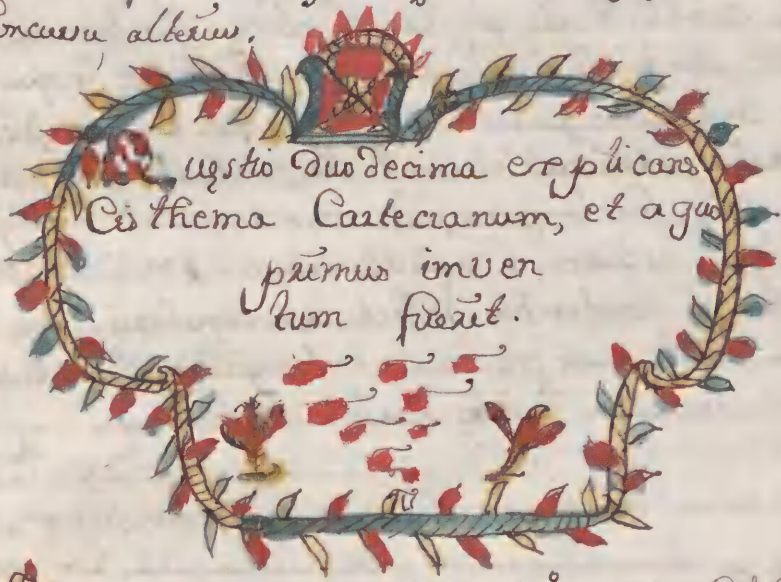 concursu alterius.
Quęstio duodecima explicans
Cisthema Cartecianum, et a quo
primus imven
tum fuerit.